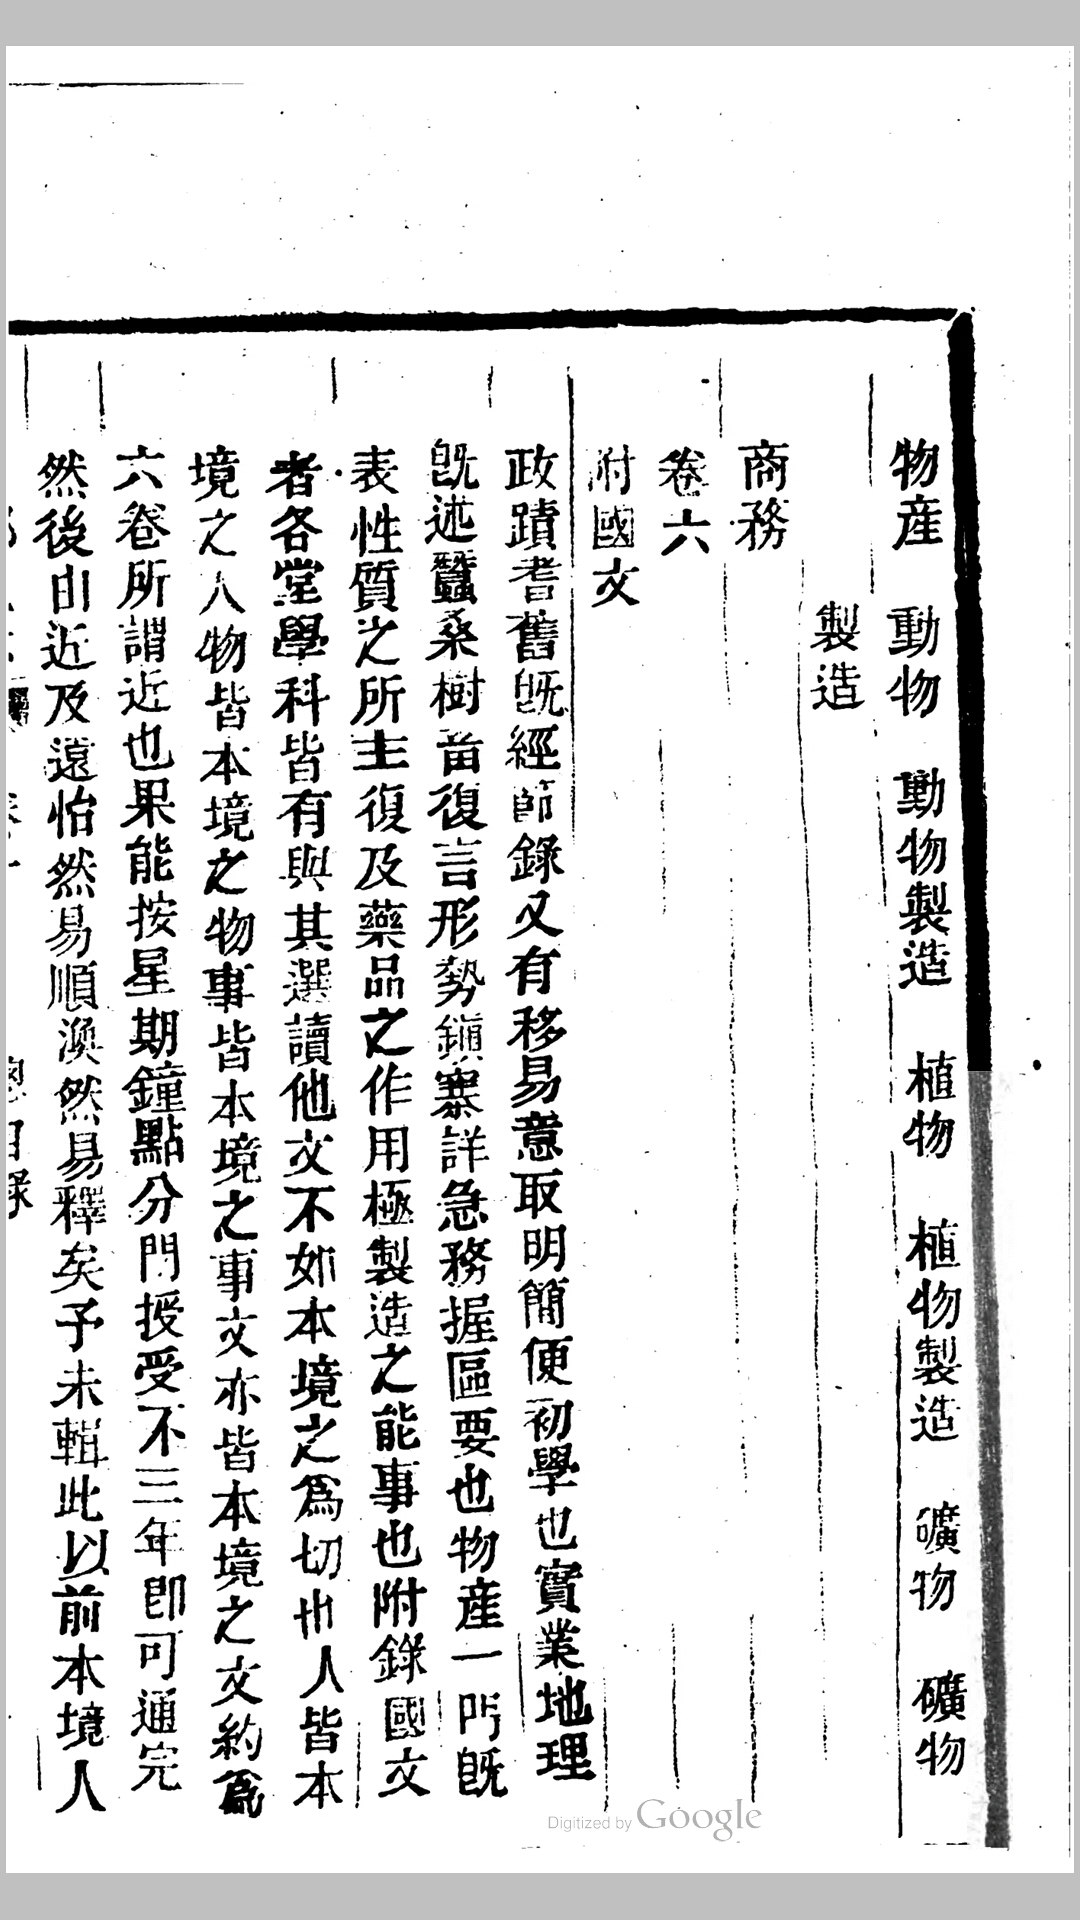 物産　動物　動物製造　植物　植物製造　礦物　礦物
製造
商務
卷六
附國文
政蹟耆舊旣經節錄又有移易意取明簡便初學也實業地理
旣述蠶桑樹苗復言形勢鎭寨詳急務握區要也物産一門旣
表性質之所主復及藥品之作用極製造之能事也附錄國文
者各堂學科皆有與其選讀他文不如本境之爲切也人皆本
境之人物皆本境之物事皆本境之事文亦皆本境之文約爲
六卷所謂近也果能按星期鐘點分門授受不三年卽可通完
然後由近及遠怡然易順渙然易釋矣予未輯此以前本境人
總目錄
Digitized by Google